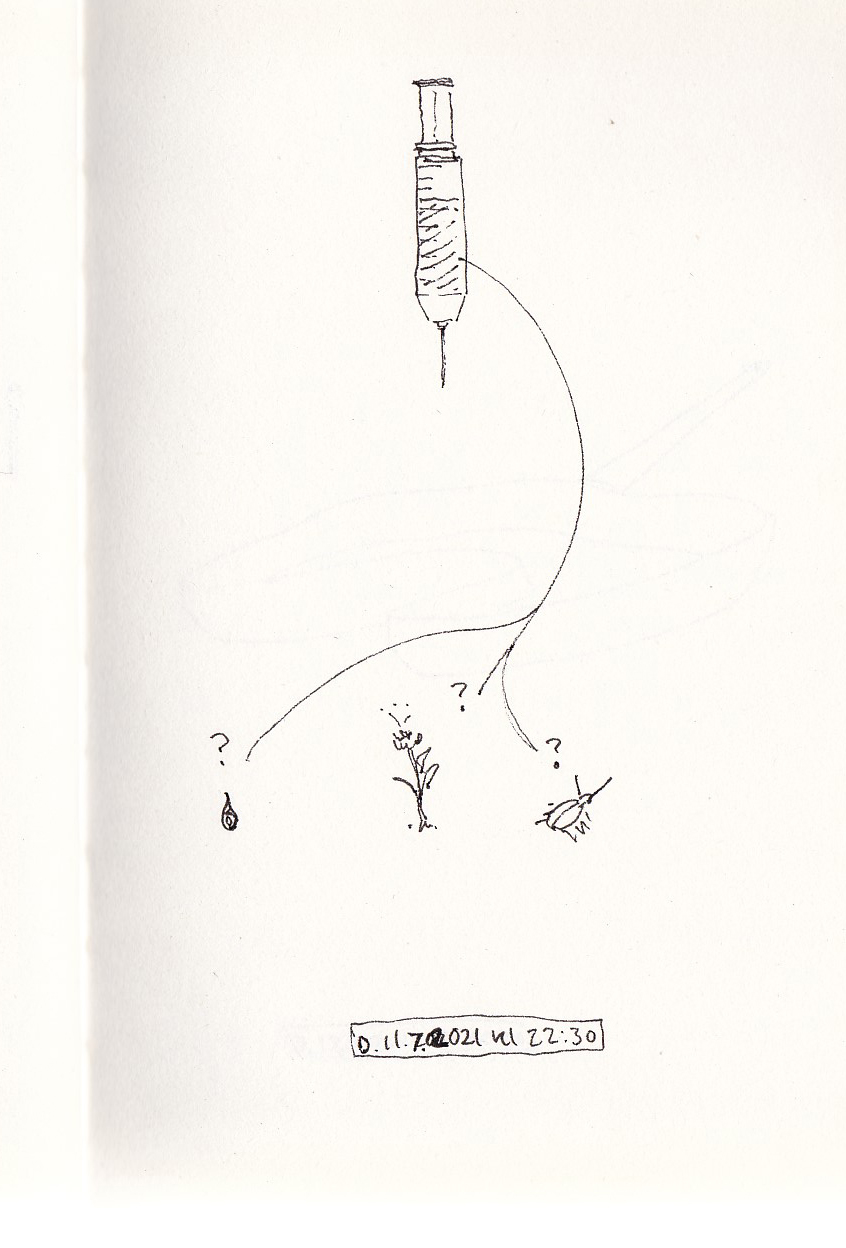 ?
?
?
D. 11.7.2021 kl 22:30